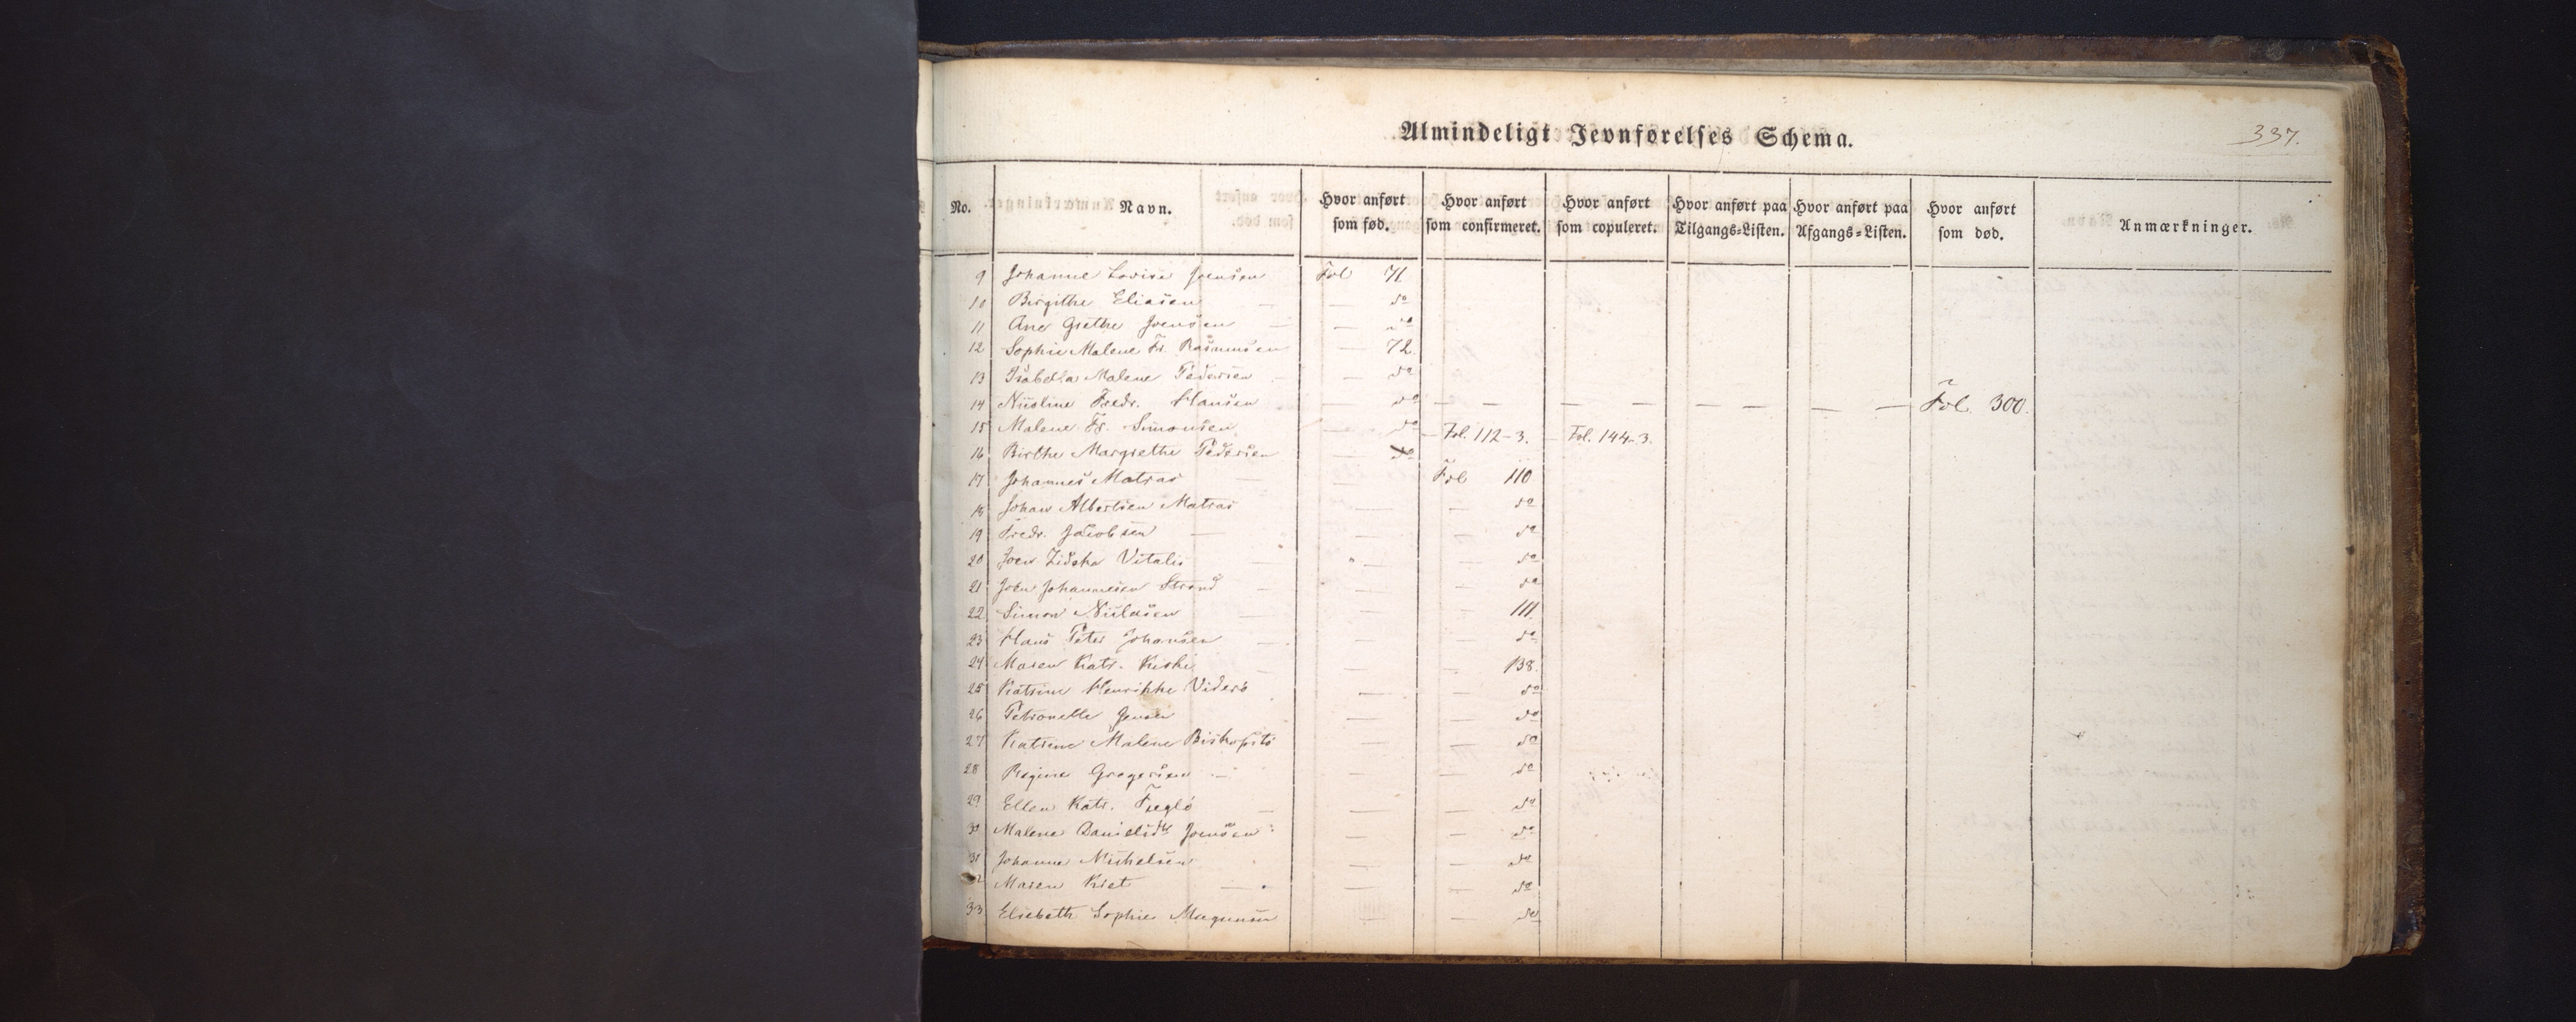 Almindeligt Jevnførelses Schema.
337.
No. Navn. Hvor anført som fød. Hvor anført som confirmeret. Hvor anført som copuleret. Hvor anført paa Tilgangs-Listen. Hvor anført paa Afgangs-Listen. Hvor anført som død. Anmærkninger.
9 Johanne Lovise Joensen Fol 71
10 Birgithe Eliasen — — do
11 Ane Grethe Joensen — — do
12 Sophie Malene Fr. Rasmussen — 72
13 Isabella Malene Pedersen — — do
14 Niisline Fredr. Hansen — do — — — — — — — — Fol. 300.
15 Malene Fr. Simonsen — do — Fol. 112-3. — Fol. 144-3.
16 Birthe Margrethe Pedersen — do
17 Johannes Matras — — Fol 110
18 Johan Albertsen Matras — — do
19 Fredr. Jacobsen — — — do
20 Joen Zidska Vitalis — — — do
21 Joen Johannesen Strand — — — do
22 Simon Niclasen — — — 111.
23 Hans Peter Johansen — — — do
24 Maren Katr. Kuske — — — 138.
25 Katrine Henrikke Viderö — — do
26 Petronelle Jensen — — do
27 Katrine Malene Biskopstö — — do
28 Regine Gregersen — — — do
29 Ellen Katr. Fugló — — — do
30 Malene Danielsdtr Joensen — — do
31 Johanne Michelsen — — do
32 Maren Kret — — — do
33 Elsebeth Sophie Magnusen — — do